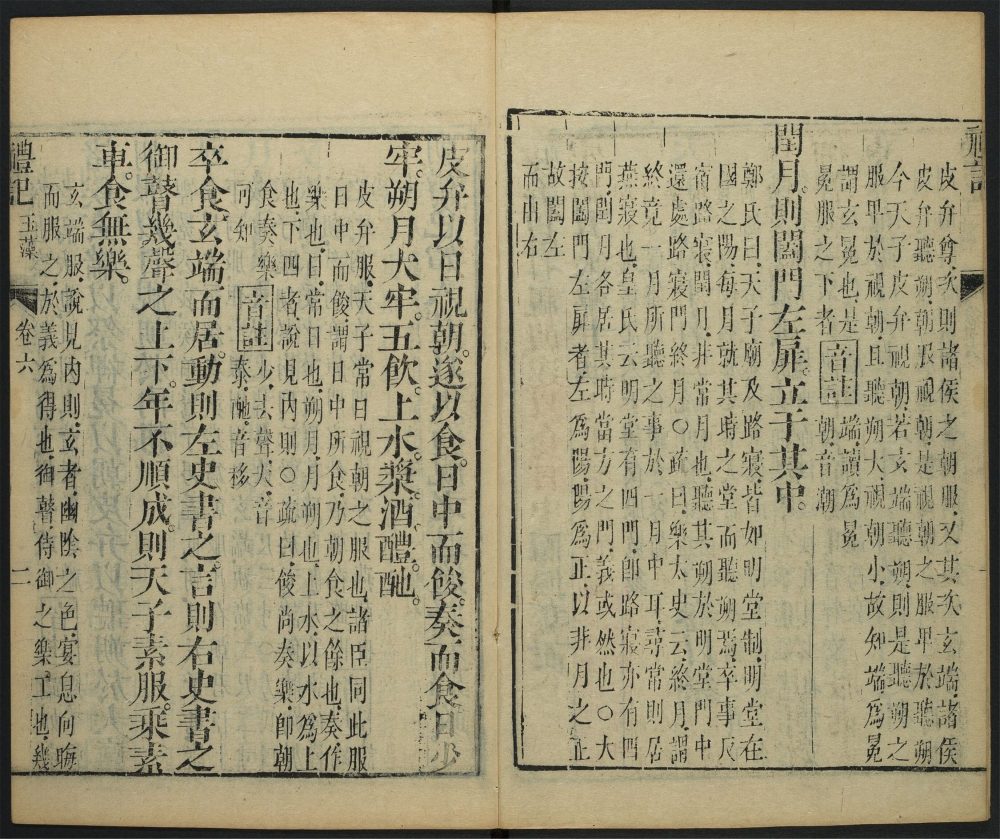 禮記
皮弁尊次則諸侯之朝服又其次玄端諸侯
皮弁聽朔朝服視朝是視朝之服卑於聽朔
今天子皮弁視朝若玄端聽朔則是聽朔之
服卑於視朝且聽朔大視朝小故知端為冕
謂玄冕也是冕服之下者 音註 端讀為冕朝音潮
閏月則闔門左扉立于其中
鄭氏曰天子廟及路寢皆如明堂制明堂在
國之陽每月就其時之堂而聽朔焉卒事反
宿路寢閏月非常月也聽其朔於明堂門中
還處路寢門終月○疏曰樂太史云終月謂
終竟一月所聽之事於一月中耳尋常則居
燕寢也皇氏云明堂有四門即路寢亦有四
門閏月各居其時當方之門義或然也○大
按闔門左扉者左為陽陽為正以非月之正
故闔左
而由右
皮弁以日視朝遂以食日中而餕奏而食日少
牢朔月大牢五飲上水漿酒醴酏
皮弁服天子常日視朝之服也諸臣同此服
日中而餕謂日中所食乃朝食之餘也奏作
樂也日常日也朔月月朔也上水以水為上
也下四者說見內則○疏曰餕尚奏樂即朝
食奏樂可知 音註 少去聲大音泰酏音移
卒食玄端而居動則左史書之言則右史書之
御瞽幾聲之上下年不順成則天子素服乘素
車食無樂
玄端服說見內則玄者幽陰之色宴息向晦
而服之於義為得也御瞽侍御之樂工也幾
禮記 玉藻 卷六 二